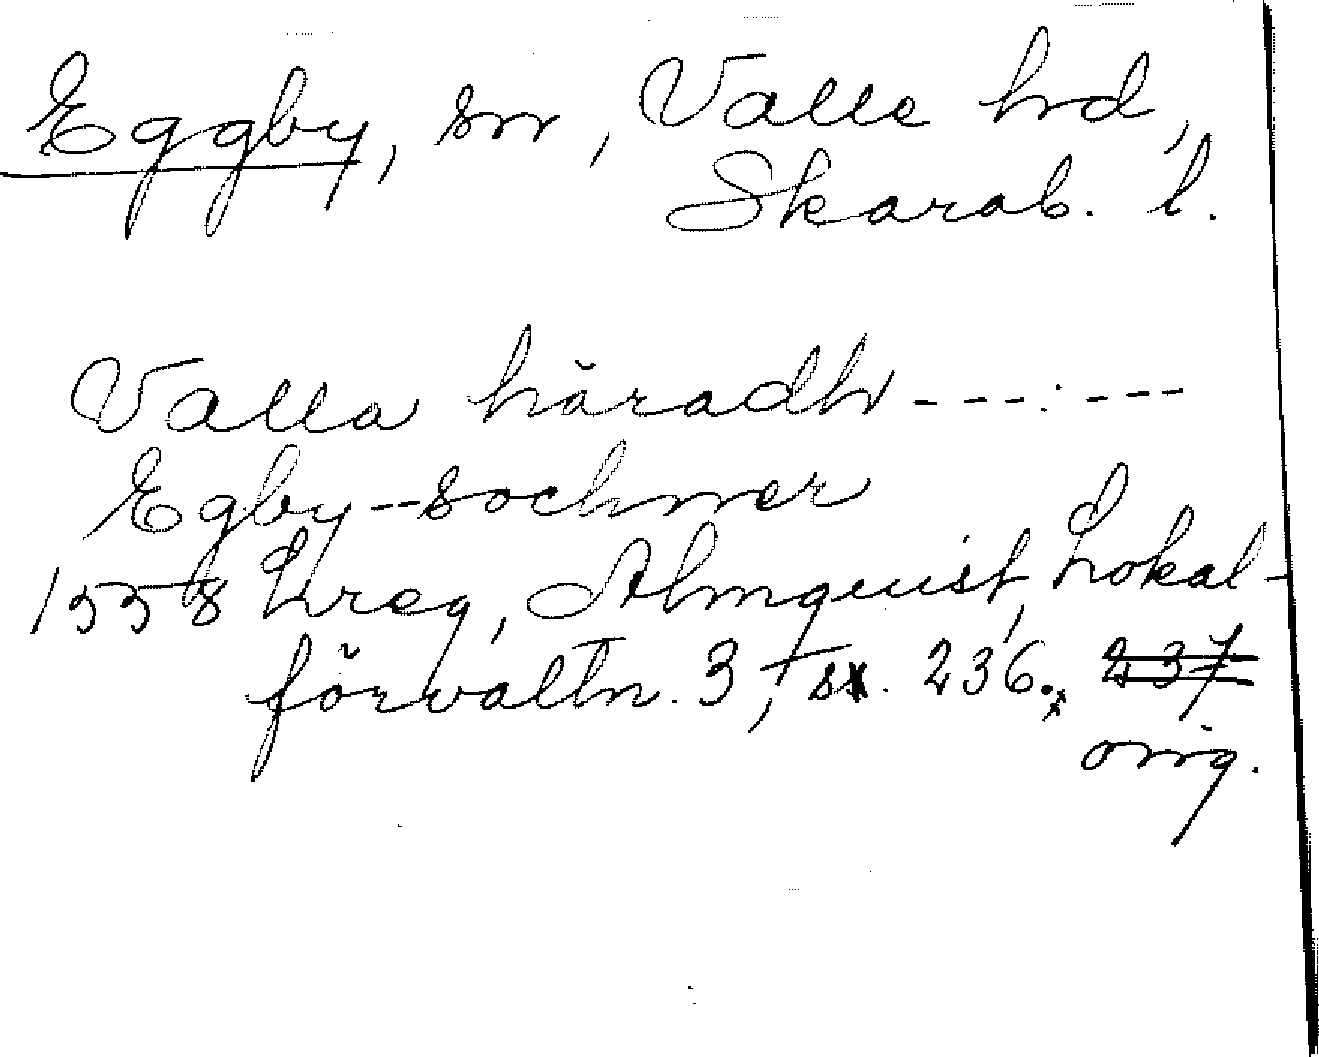 Eggby, sn, Valle hd,
Skarab. l.
Valla häradh ---:---
Egby-sochner
1558 Lreg, Almquist, Lokal-
förvaltn. 3, s. 236. 237
orig.